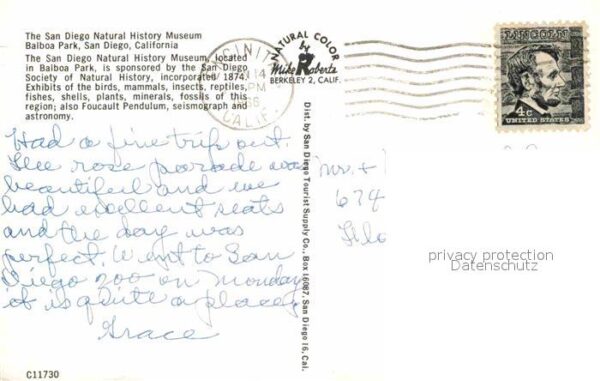 The San Diego Natural History Museum
Balboa Park, San Diego, California
The San Diego Natural History Museum, located
in Balboa Park, is sponsored by the San Diego
Society of Natural History, incorporated 1874.
Exhibits of the birds, mammals, insects, reptiles,
fishes, shells, plants, minerals, fossils of this
region; also Foucault Pendulum, seismograph and
astronomy.
NATURAL COLOR
by
Mike Roberts
BERKELEY 2, CALIF.
14
PM
CALIF.
LINCOLN
4c
UNITED STATES
Had a fine trip out.
The rose parade was
beautiful and we
had excellent seats
and the day was
perfect. Went to San
Diego zoo on Monday
it is quite a place,
Grace
Dist. by San Diego Tourist Supply Co., Box 16087, San Diego 16, Cal.
Mr. +
674
Flo
privacy protection
Datenschutz
C11730